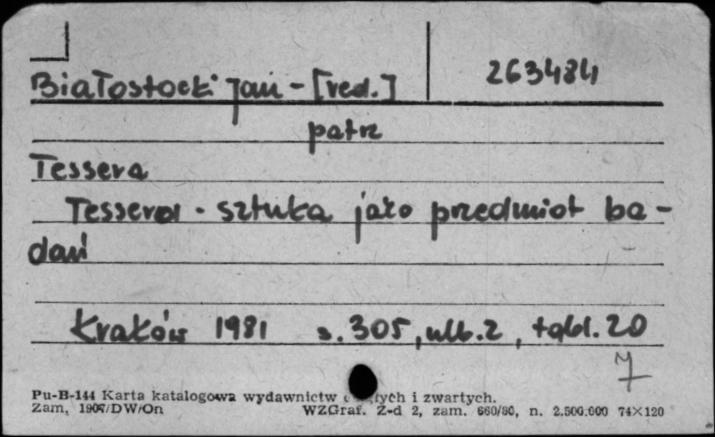 Białostocki Jan - [red.] 263484
patrz
Tessera
Tessera - sztuka jako przedmiot ba-
dań
Kraków 1981 s. 305, nlb. 2, tabl. 20
7
Pu-B-144 Karta katalogowa wydawnictw i zwartych.
Zam, /DW/On WZGraf. Z-d 2, zam. 660/80, n. 2.500.000 74×120